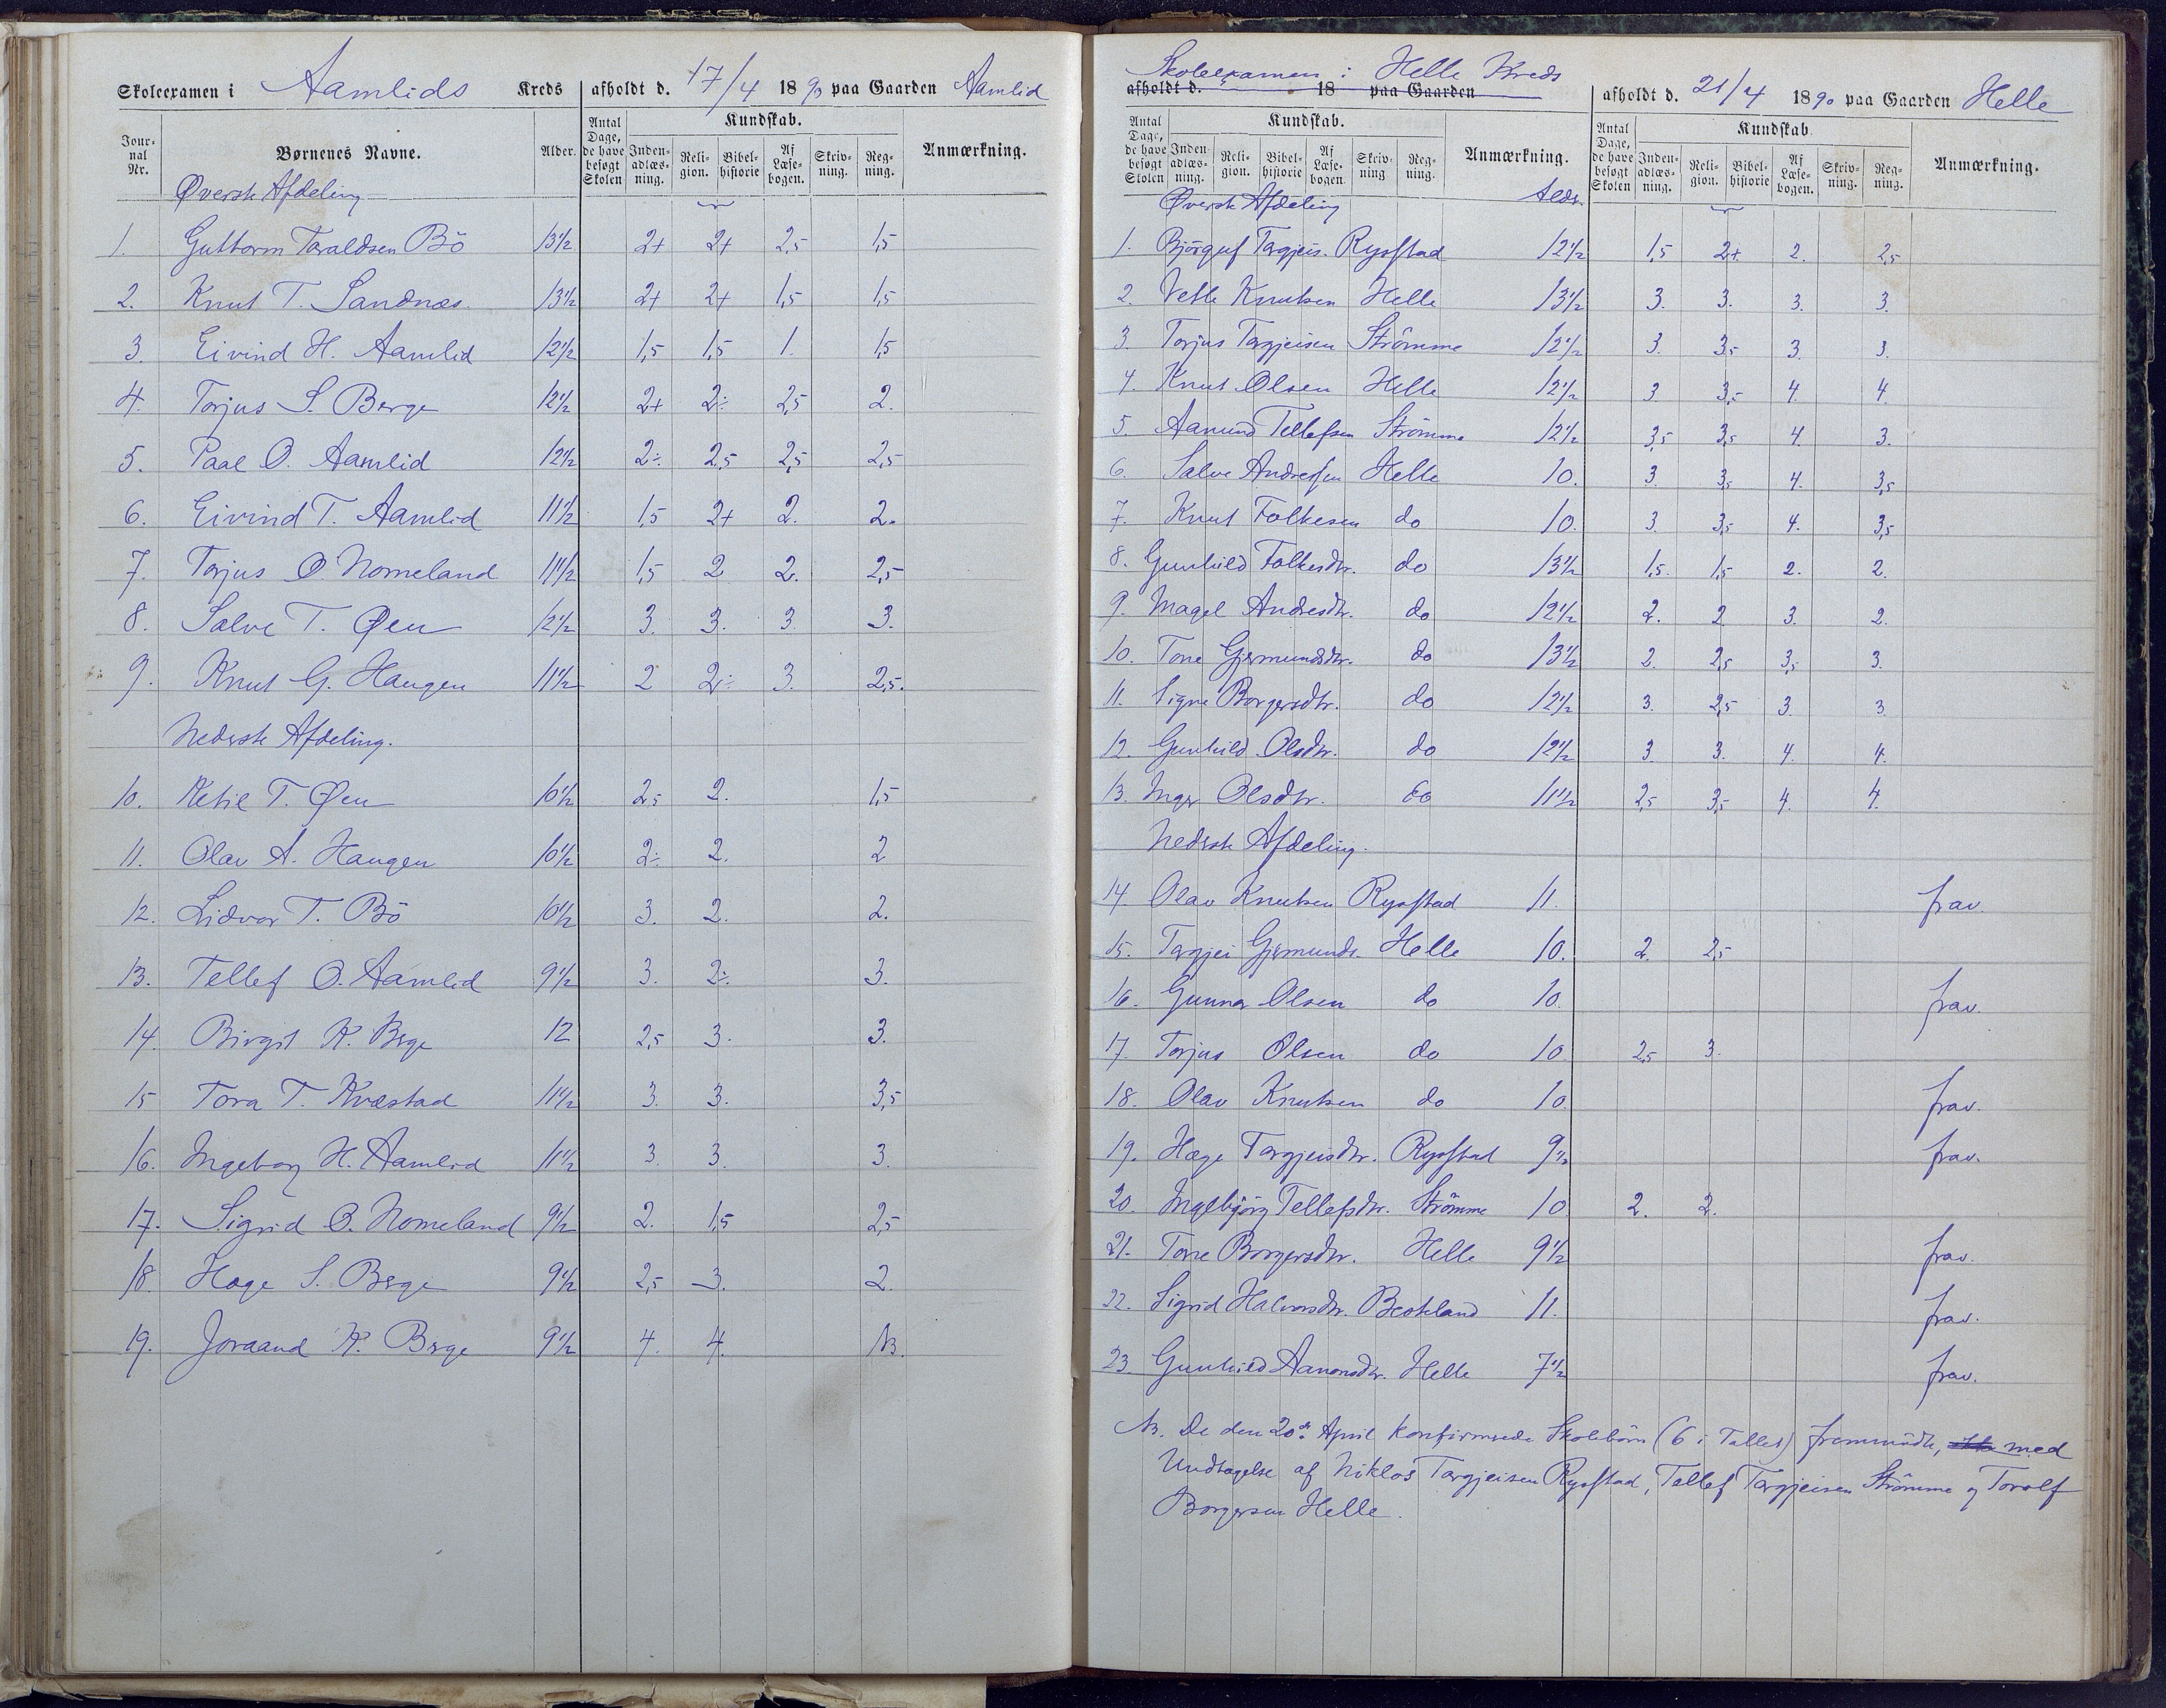 Skoleexamen i Aamlids Kreds afholdt d. 17/4 1890 paa Gaarden Aamlid
Jour-nal Nr. Børnenes Navne. Alder. Antal Dage, de have besøgt Skolen Kundskab. Inden-adlæs-ning. Reli-gion. Bibel-historie Af Læse-bogen. Skriv-ning. Reg-ning. Anmærkning.
Øverste Afdeling
1. Guttorm Taraldsen Bö 13 1/2 2+ 2+ 2,5 1,5
2. Knut T. Sandnæs 13 1/2 2+ 2+ 1,5 1,5
3. Eivind H. Aamlid 12 1/2 1,5 1,5 1. 1,5
4. Torjus S. Berge 12 1/2 2+ 2÷ 2,5 2.
5. Paal O. Aamlid 12 1/2 2÷ 2,5 2,5 2,5
6. Eivind T. Aamlid 11 1/2 1,5 2+ 2. 2.
7. Torjus O. Nomeland 11 1/2 1,5 2 2. 2,5
8. Salve T. Øen 12 1/2 3. 3. 3. 3.
9. Knut G. Haugen 11 1/2 2 2÷ 3. 2,5.
Nederste Afdeling.
10. Ketil T. Øen 10 1/2 2,5 2. 1,5
11. Olav A. Haugen 10 1/2 2÷ 2. 2
12. Lidvor T. Bö 10 1/2 3. 2. 2.
13. Tellef O. Aamlid 9 1/2 3. 2÷ 3.
14. Birgit K. Berge 12 2,5 3. 3.
15 Tora T. Kvæstad 11 1/2 3. 3. 3,5
16. Ingeborg H. Aamlid 11 1/2 3. 3. 3.
17. Sigrid O. Nomeland 9 1/2 2. 1,5 2,5
18. Hage S. Berge 9 1/2 2,5 3. 2.
19. Joraand K. Berge 9 1/2 4. 4.
Skoleexamen i Helle Kreds
afholdt d. 18 paa Gaarden afholdt d. 21/4 1890 paa Gaarden Helle
Antal Dage, de have besøgt Skolen Kundskab. Inden-adlæs-ning. Reli-gion. Bibel-historie Af Læse-bogen. Skriv-ning Reg-ning. Anmærkning. Antal Dage, de have besøgt Skolen Kundskab Inden-adlæs-ning. Reli-gion. Bibel-historie Af Læse-bogen. Skriv-ning. Reg-ning. Anmærkning.
Øverste Afdeling Alder
1. Björguf Targjeis. Rysstad 12 1/2 1,5 2+ 2. 2,5
2. Vetle Knutsen Helle 13 1/2 3. 3. 3. 3.
3 Torjus Targjeisen Strömme 12 1/2 3. 3,5 3. 3.
4. Knut Olsen Helle 12 1/2 3. 3,5 4. 4.
5. Aanund Tellefsen Strömme 12 1/2 3,5 3,5 4. 3.
6. Salve Andressen Helle 10. 3. 3,5 4. 3,5
7. Knut Folkesen do 10. 3. 3,5 4. 3,5
8. Gunhild Folkesdtr. do 13 1/2 1,5. 1,5 2. 2.
9. Magel Andresdtr. do 12 1/2 2. 2 3. 2.
10. Tone Gjermundsdtr. do 13 1/2 2. 2,5 3,5 3.
11. Signe Borgersdtr. do 12 1/2 3. 2,5 3. 3.
12. Gunhild Olsdtr. do 12 1/2 3. 3. 4. 4.
13. Inger Olsdtr. do 11 1/2 2,5 3,5 4. 4.
Nederste Afdeling.
14. Olav Knutsen Rysstad 11. frav.
15. Targjei Gjermunds. Helle 10. 2. 2,5
16. Gunnar Olsen do 10. frav.
17. Torjus Olsen do 10. 2,5 3.
18. Olav Knutsen do 10. frav.
19. Hæge Targjeisdtr. Rysstad 9 1/2 frav.
20. Ingebjörg Tellefsdtr. Strömme 10 2. 2.
21. Tone Borgersdtr. Helle 9 1/2 frav.
22. Sigrid Halvorsdtr. 11. frav.
23. Gunhild Aanonsdtr. Helle 7 1/2 frav.
NB. De den 20de April konfirmerede Skolebörn (6 i Tallet) fremmödte, med
Undtagelse af Niklos Targjeisen Rysstad, Tellef Targjeisen Strömme og Torolf
Borgersen Helle.